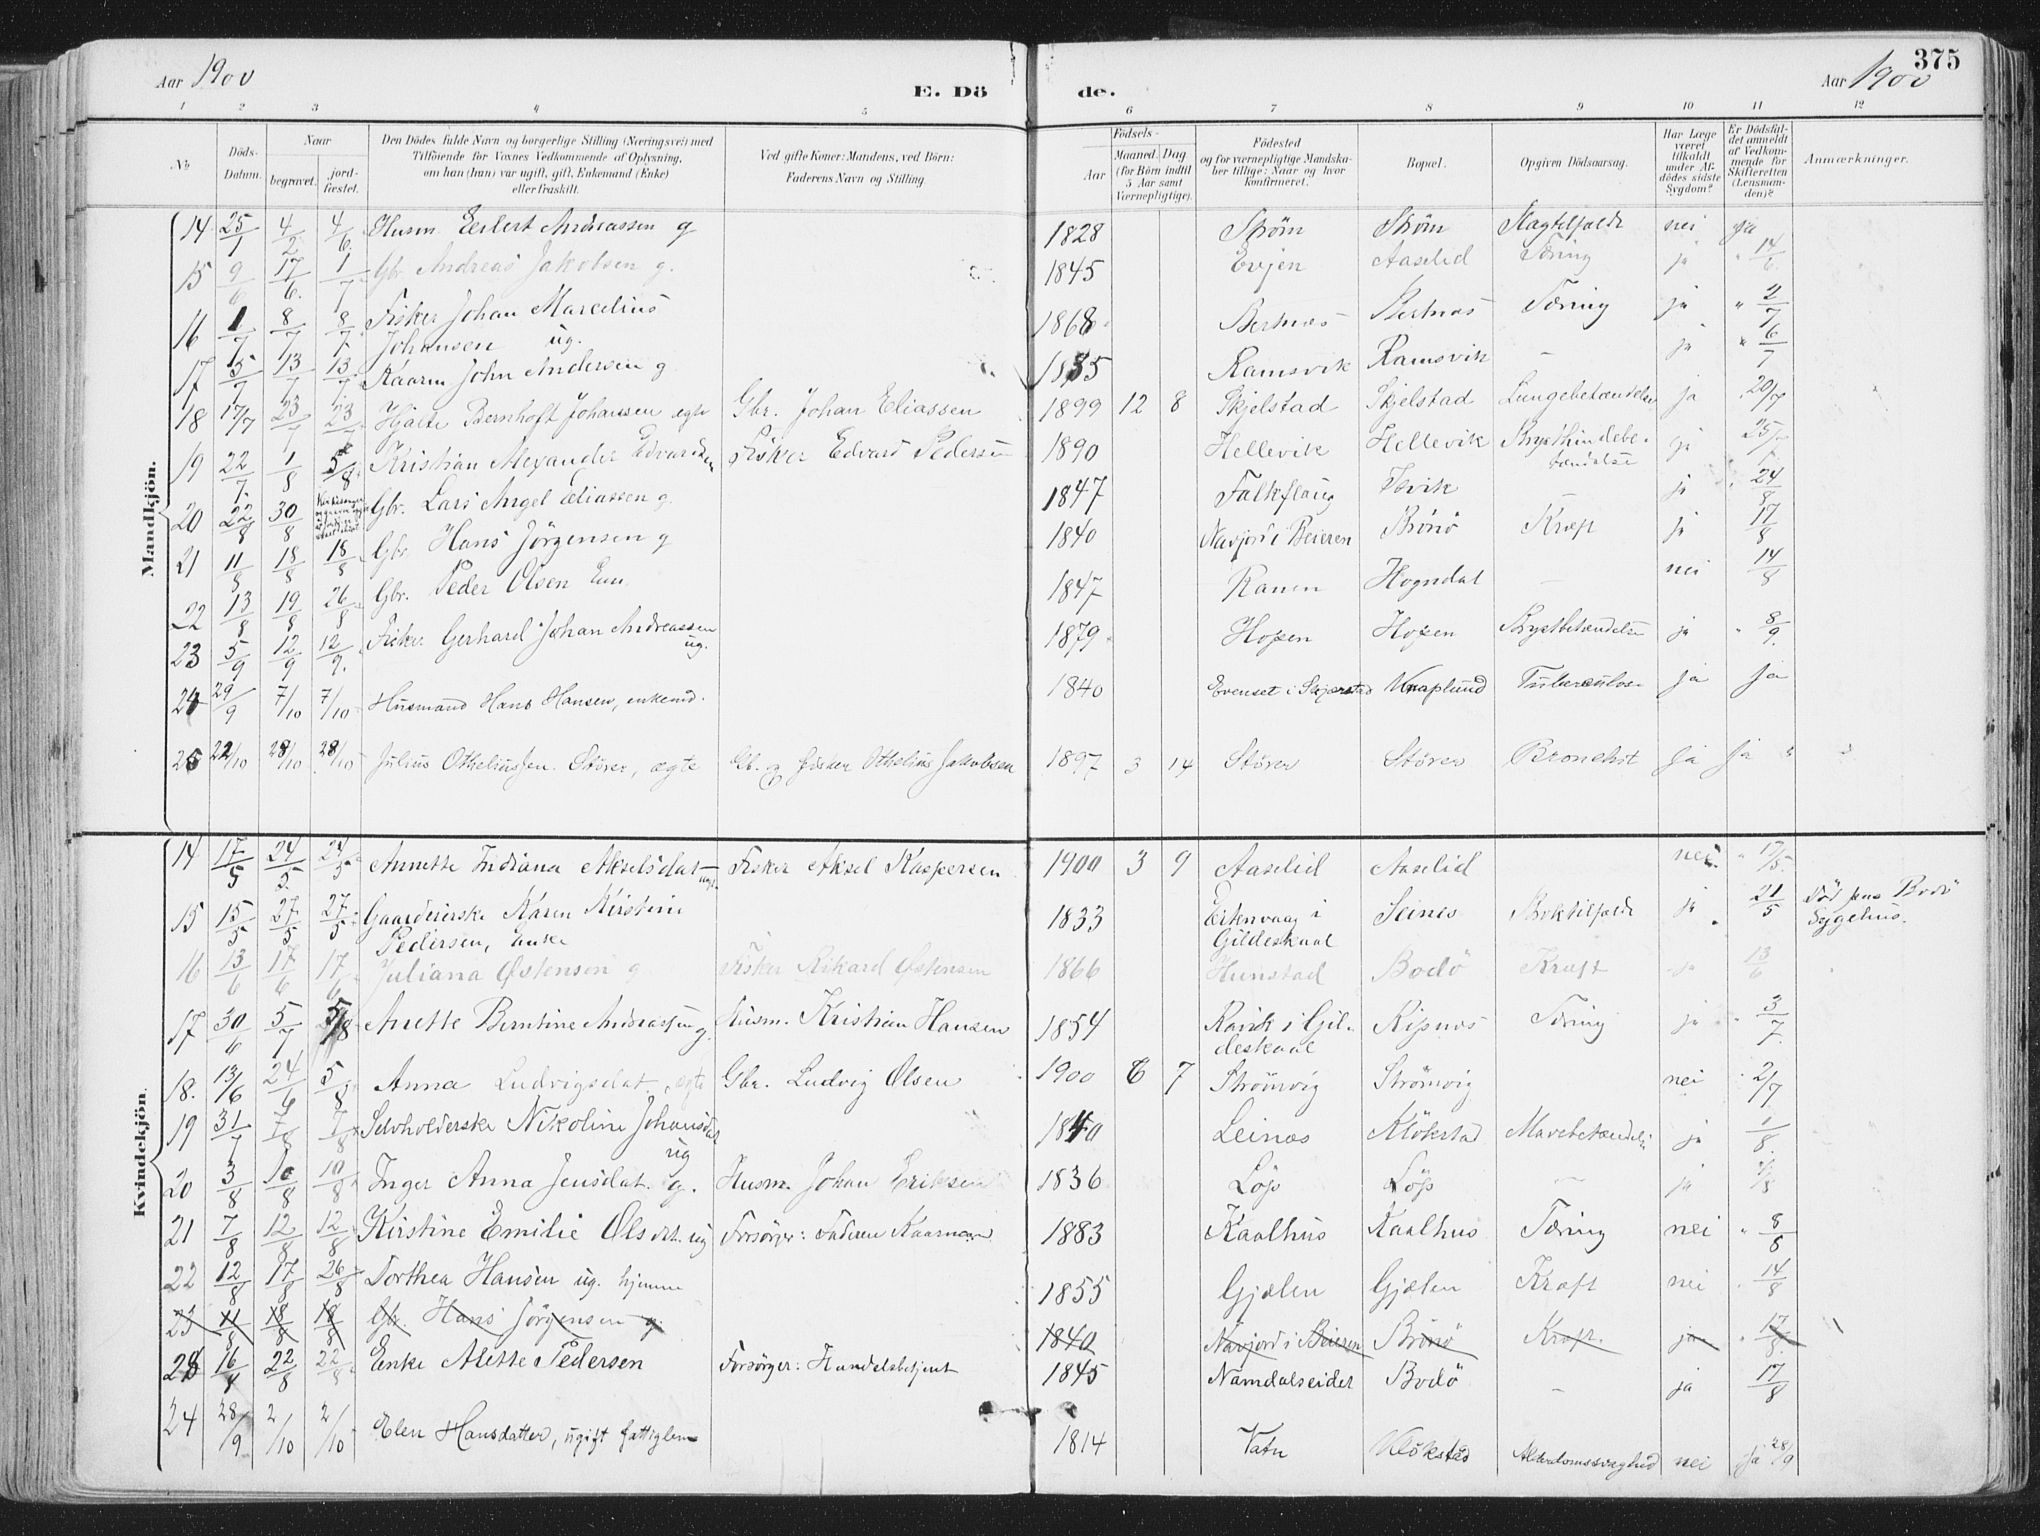 Aar 1900
E. Döde.
Aar 1900
375
1 2 3 4 5 6 7 8 9 10 11 12
No
Döds-Datum.
Naar
begravet.
jordfæstet.
Den Dödes fulde Navn og borgerlige Stilling (Næringsvei) med
Tilföiende for Voxnes Vedkommende af Oplysning,
om han (hun) var ugift, gift, Enkemand (Enke)
eller fraskilt.
Ved gifte Koner: Mandens, ved Börn:
Faderens Navn og Stilling.
Födsels-
Aar
Maaned. Dag.
(for Börn indtil
5 Aar samt
Værnepligtige).
Födested
og for værnepligtige Mandskaber tillige: Naar og hvor
konfirmeret.
Bopæl.
Opgiven Dødsaarsag.
Har Læge
været
tilkaldt
under Afdödes sidste
Sygdom?
Er Dödsfaldet anmeldt
af Vedkommende for
Skifteretten
(Lensmanden)?
Anmærkninger.
Mandkjön.
14 25/1 4/2 4/6 Husm. Eilert Andreassen g 1828 Strøm Strøm Slagtilfælde nei ja
15 9/6 17/6 1/7 Gbr. Andreas Jakobsen g. 1845 Evjen Aaselid Tæring ja " 14/6
16 1/7 8/7 8/7 Fisker Johan Marcelius
Johansen ug. 1868 Bertnæs Bertnæs Tæring ja " 2/7
17 5/7 13/7 13/7 Kaarm John Andersen g 1835 Ramsvik Ramsvik - ja " 6/7
18 17/7 23/7 23/7 Hjalte Bernhoft Johansen ægte Gbr. Johan Eliassen 1899 12 8 Skjelstad Skjelstad Lungebetændelse ja 20/7
19 22/7 1/8 5/8 Kristian Alexander Edvardsen Fisker Edvard Pedersen 1890 Hellevik Hellevik Brysthindebetændelse ja 25/7
20 22/8 30/8 Gbr. Lars Angel Eliassen g. 1847 Falkflaug - ja 24/8
21 11/8 18/8 18/8 Gbr. Hans Jörgensen g 1840 Navjord i Beieren Brönö Kræft ja 17/8
22 13/8 19/8 26/8 Gbr. Peder Olsen Enm. 1847 Ranen Hogndal - nei 14/8
23 5/9 12/9 12/9. Fisker Gerhard Johan Andreassen
ug. 1879 Hopen Hopen Brystbetændelse ja " 8/9.
24 29/9 7/10 7/10 Husmand Hans Hansen, enkemd. 1840 Evenset i Skjerstad Knaplund Tuberculose ja ja
25 22/10 28/10 28/10 Julius Otheliussen Störer, ægte Gb. og fisker Othelius Jakobsen 1897 3 14 Störer Störer Bronchit ja ja " "
Kvindekjön.
14 17/5 24/5. 24/5 Annette Indiana Akselsdat Fisker Aksel Kaspersen 1900 3 9 Aaselid Aaselid nei " 17/5.
15 15/5 27/5 27/5 Gaardeierske Karen Kirstine
Pedersen, enke 1833 i
Gildeskaal Seines ja 21/5 Död paa Bodö
Sygehus.
16 13/6 17/6 17/6 Juliana Østensen g Fisker Rikard Østensen 1866 Hunstad Bodö Kræft ja 13/6
17 30/6 5/7 5/8 Anette Berntine Andreassen g. Husm. Kristian Hansen 1854 Ravik i Gildeskaal Ripnæs Tæring ja " 3/7.
18. 13/6 24/6 5/8 Anna Ludvigsdat. ægte Gbr. Ludvig Olsen 1900 6 7 Strömvig Strömvig nei 2/7
19 31/7 7/8 7/8 Selvholderske Nikoline Johansdat
ug 1840 Leinæs Klökstad Mavebetændelse ja 1/8.
20 3/8 10/8 10/8 Inger Anna Jensdat. g. Husm. Johan Eriksen 1836 Löp Löp - ja 7/8
21 7/8 12/8 12/8 Kirstine Emilie Olsdt. ug Forsörger: Faderen Kaarman 1883 Kaalhus Kaalhus Tæring nei " 8/8
22 12/8 17/8 26/8 Dorthea Hansen ug. hjemme 1855 Gjælen Gjælen Kræft nei 14/8
23 11/8 18/8 18/8 Gbr. Hans Jörgensen g. 1840 Navjord i Beieren Brönö Kræft. ja " 17/8.
23 16/8 22/8 22/8 Enke Alette Pedersen Forsörger: Handelsbetjent 1845 Namdalseidet Bodö - ja 17/8
24 28/9 2/10 2/10 Elen Hansdatter, ugift fattiglem 1814 Vatn Klökstad Alderdomssvaghed nei ja 28/9